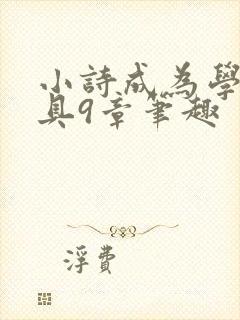 小詩成為學
具9章筆趣
浮費